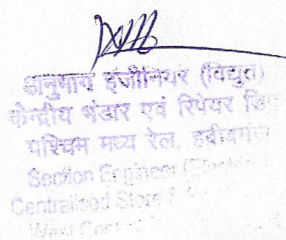 अनुभाग इंजीनियर (विद्युत)
केन्द्रीय भंडार एवं रिपेयर
पश्चिम मध्य रेल, हबीबगंज
Section Engineer
Centralised Store &
West Cent